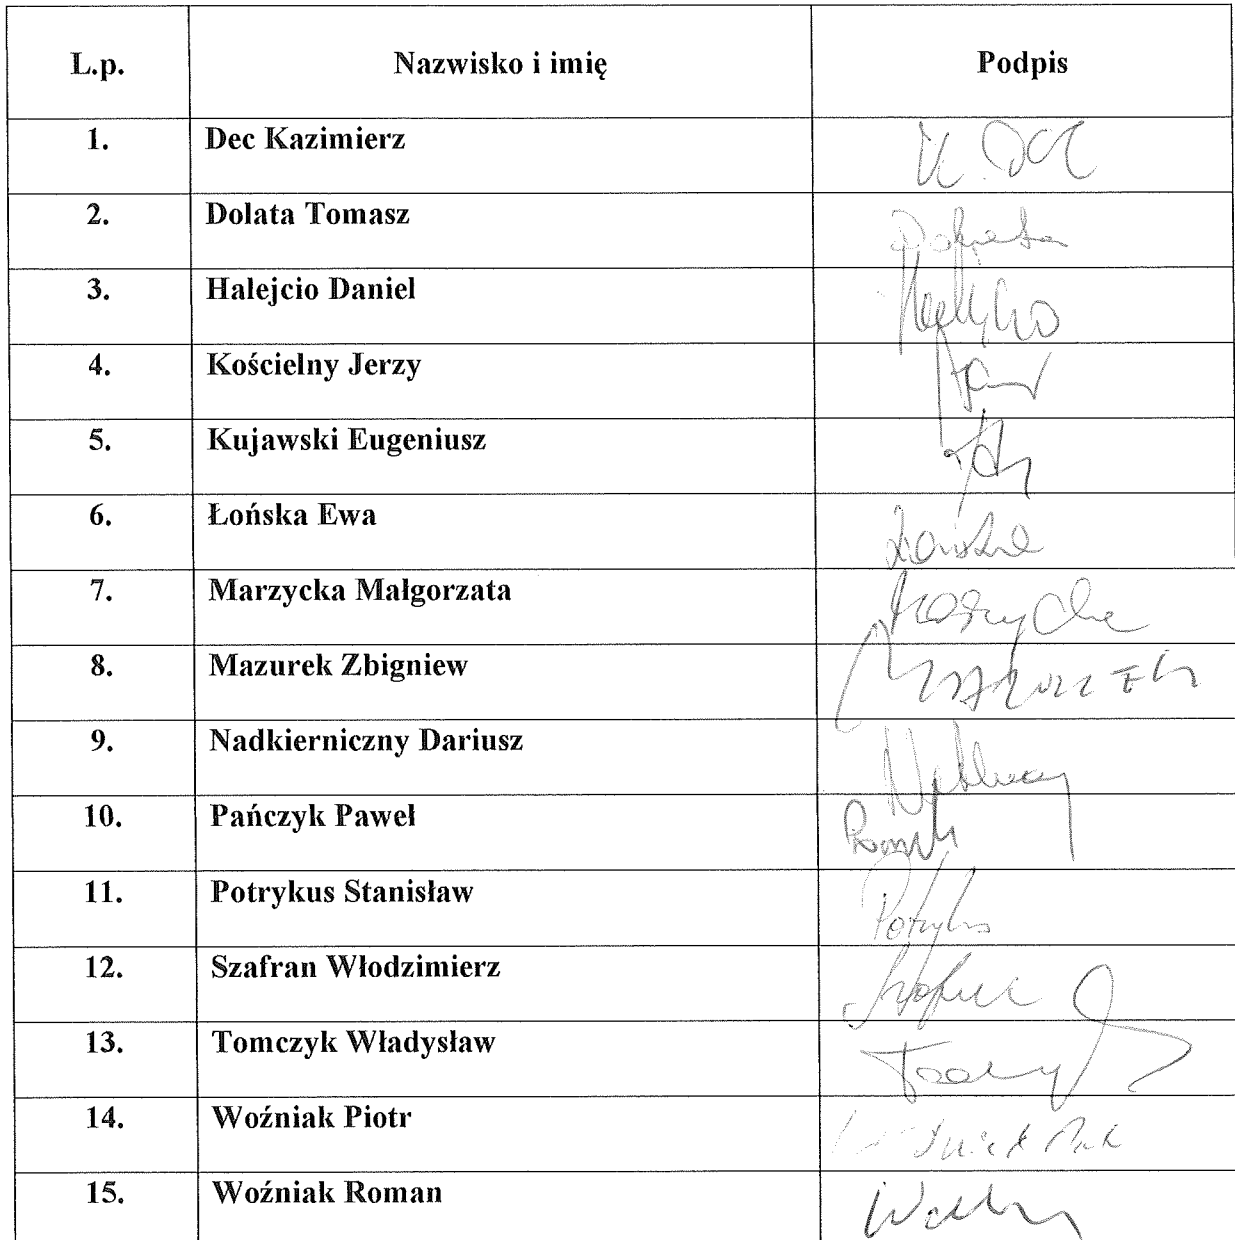 L.p. Nazwisko i imię Podpis
1. Dec Kazimierz K. Dec
2. Dolata Tomasz Dolata
3. Halejcio Daniel
4. Kościelny Jerzy
5. Kujawski Eugeniusz
6. Łońska Ewa Łońska
7. Marzycka Małgorzata
8. Mazurek Zbigniew MAZUREK
9. Nadkierniczny Dariusz
10. Pańczyk Paweł
11. Potrykus Stanisław
12. Szafran Włodzimierz
13. Tomczyk Władysław
14. Woźniak Piotr
15. Woźniak Roman